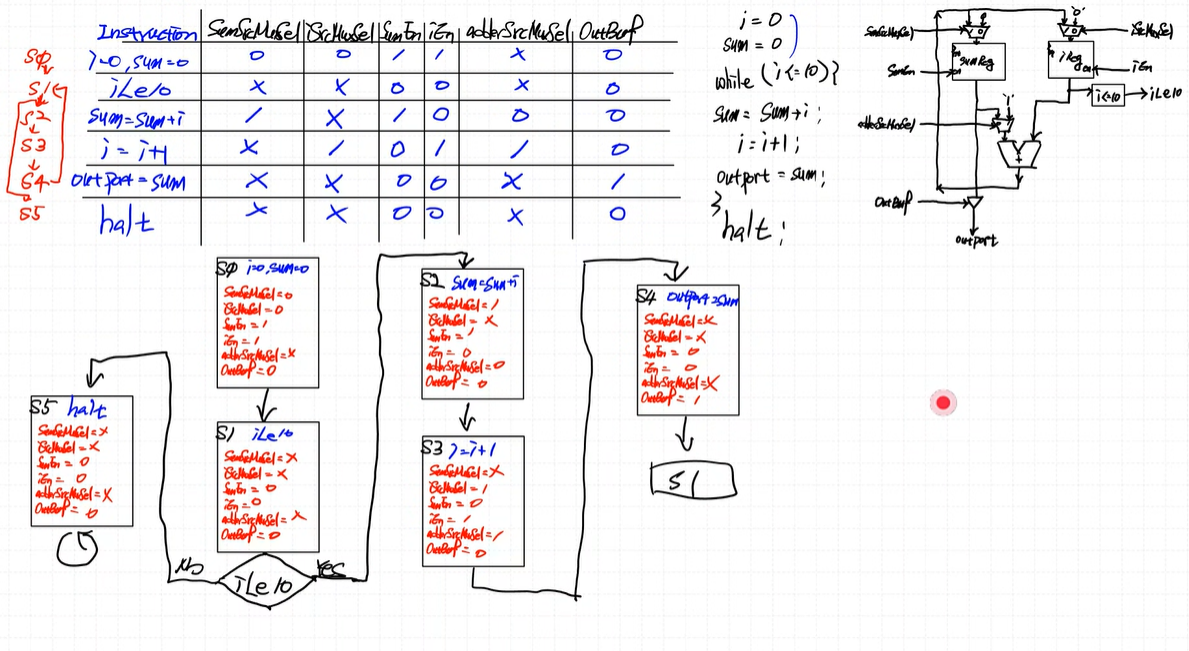 Instruction SumSrcMuxSel iSrcMuxSel SumEn iEn adderSrcMuxSel OutBuf
S0 i=0, sum=0 0 0 1 1 X 0
S1 iLe10 X X 0 0 X 0
S2 sum=sum+i 1 X 1 0 0 0
S3 i=i+1 X 1 0 1 1 0
S4 outport=sum X X 0 0 X 1
S5 halt X X 0 0 X 0
i=0
sum=0
while (i<=10){
sum= sum+i;
i=i+1;
outport = sum;
}
halt;
SumSrcMuxSel
'0'
iSrcMuxSel
SumEn
SumReg
iReg
iEn
i<=10
iLe10
'1'
adderSrcMuxSel
+
OutBuf
outport
S0 i=0, sum=0
SumSrcMuxSel=0
iSrcMuxSel=0
SumEn=1
iEn=1
adderSrcMuxSel=X
OutBuf=0
S1 iLe10
SumSrcMuxSel=X
iSrcMuxSel=X
SumEn=0
iEn=0
adderSrcMuxSel=X
OutBuf=0
iLe10
No
Yes
S2 sum=sum+i
SumSrcMuxSel=1
iSrcMuxSel=X
SumEn=1
iEn=0
adderSrcMuxSel=0
OutBuf=0
S3 i=i+1
SumSrcMuxSel=X
iSrcMuxSel=1
SumEn=0
iEn=1
adderSrcMuxSel=1
OutBuf=0
S4 outport=sum
SumSrcMuxSel=X
iSrcMuxSel=X
SumEn=0
iEn=0
adderSrcMuxSel=X
OutBuf=1
S1
S5 halt
SumSrcMuxSel=X
iSrcMuxSel=X
SumEn=0
iEn=0
adderSrcMuxSel=X
OutBuf=0